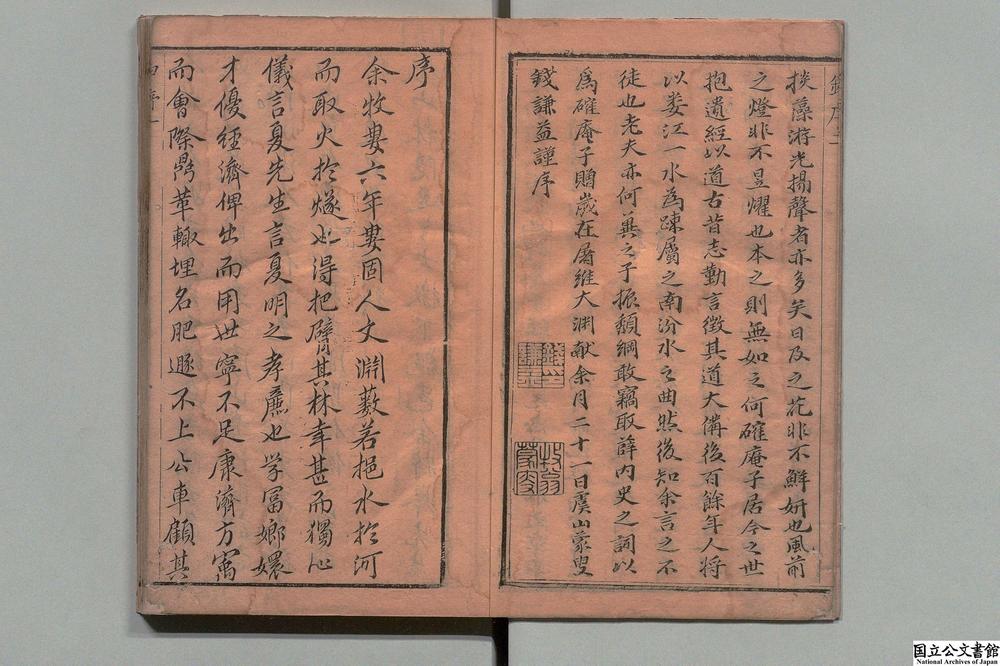 掞藻游光揚聲者亦多矣日及之花非不鮮妍也風前
之燈非不昱燿也本之則無如之何確庵子居今之世
抱遺經以道古昔志勤言徴其道大備後百餘年人将
以婁江一水為疎屬之南汾水之曲然後知余言之不
徒也老夫亦何冀之子振頽綱敢竊取薛内史之詞以
為確庵子贈歲在屠維大淵献余月二十一日虞山蒙叟
錢謙益謹序
序
余牧婁六年婁固人文淵藪若挹水於河
而取火於燧也得把臂其林幸甚而獨心
儀言夏先生言夏明之孝廉也学富嫏嬛
才優經濟俾出而用世寧不足康濟方寓
而會際鼎革輙埋名肥遯不上公車顧其
国立公文書館
National Archives of Japan